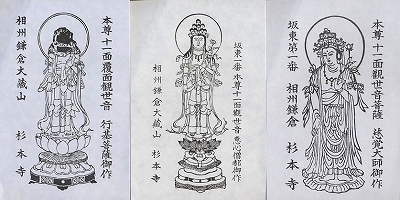 本尊十一面覆面觀世音 行基菩薩御作
相州鎌倉大蔵山 杉本寺
坂東一番 本尊十一面觀世音 恵心僧都御作
相州鎌倉大蔵山 杉本寺
本尊十一面觀世音菩薩 慈覚大師御作
坂東第一番 相州鎌倉 杉本寺